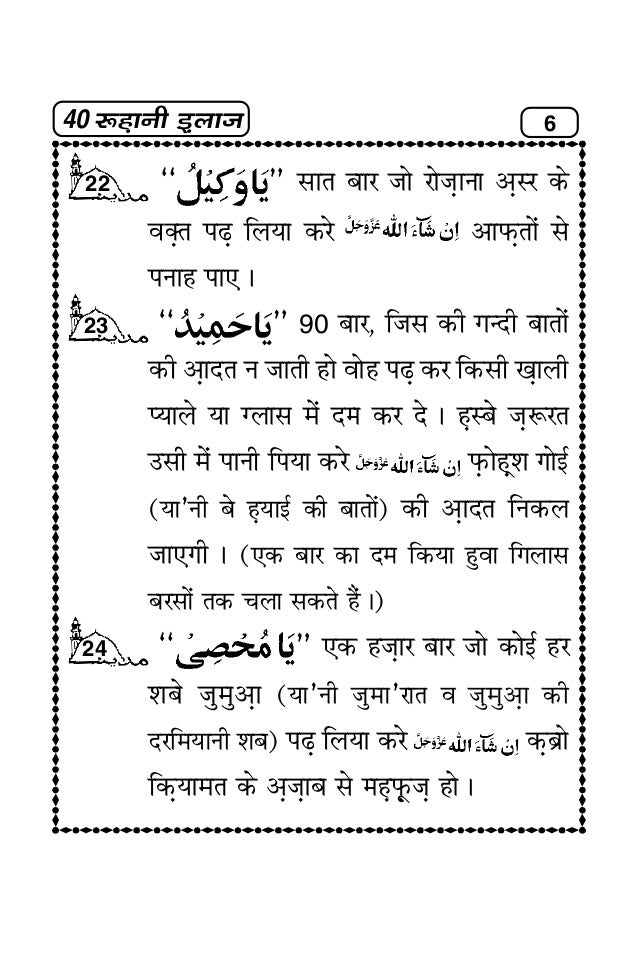 40 रूहानी इलाज
6
22 مدینہ ‘‘یَا وَکِیْلُ’’ सात बार जो रोज़ाना अ़स्र के
वक़्त पढ़ लिया करे اِنْ شَآءَ اللّٰه عَزَّوَجَلَّ आफ़तों से
पनाह पाए ।
23 مدینہ ‘‘یَا حَمِیْدُ’’ 90 बार, जिस की गन्दी बातों
की आ़दत न जाती हो वोह पढ़ कर किसी ख़ाली
प्याले या ग्लास में दम कर दे । ह़स्बे ज़रूरत
उसी में पानी पिया करे اِنْ شَآءَ اللّٰه عَزَّوَجَلَّ फ़ोह़्श गोई
(या'नी बे ह़याई की बातों) की आ़दत निकल
जाएगी । (एक बार का दम किया हुवा गिलास
बरसों तक चला सकते हैं ।)
24 مدینہ ‘‘یَا مُحْصِیْ’’ एक हज़ार बार जो कोई हर
शबे जुमुआ़ (या'नी जुमा'रात व जुमुआ़ की
दरमियानी शब) पढ़ लिया करे اِنْ شَآءَ اللّٰه عَزَّوَجَلَّ क़ब्रो
क़ियामत के अ़ज़ाब से मह़फ़ूज़ हो ।